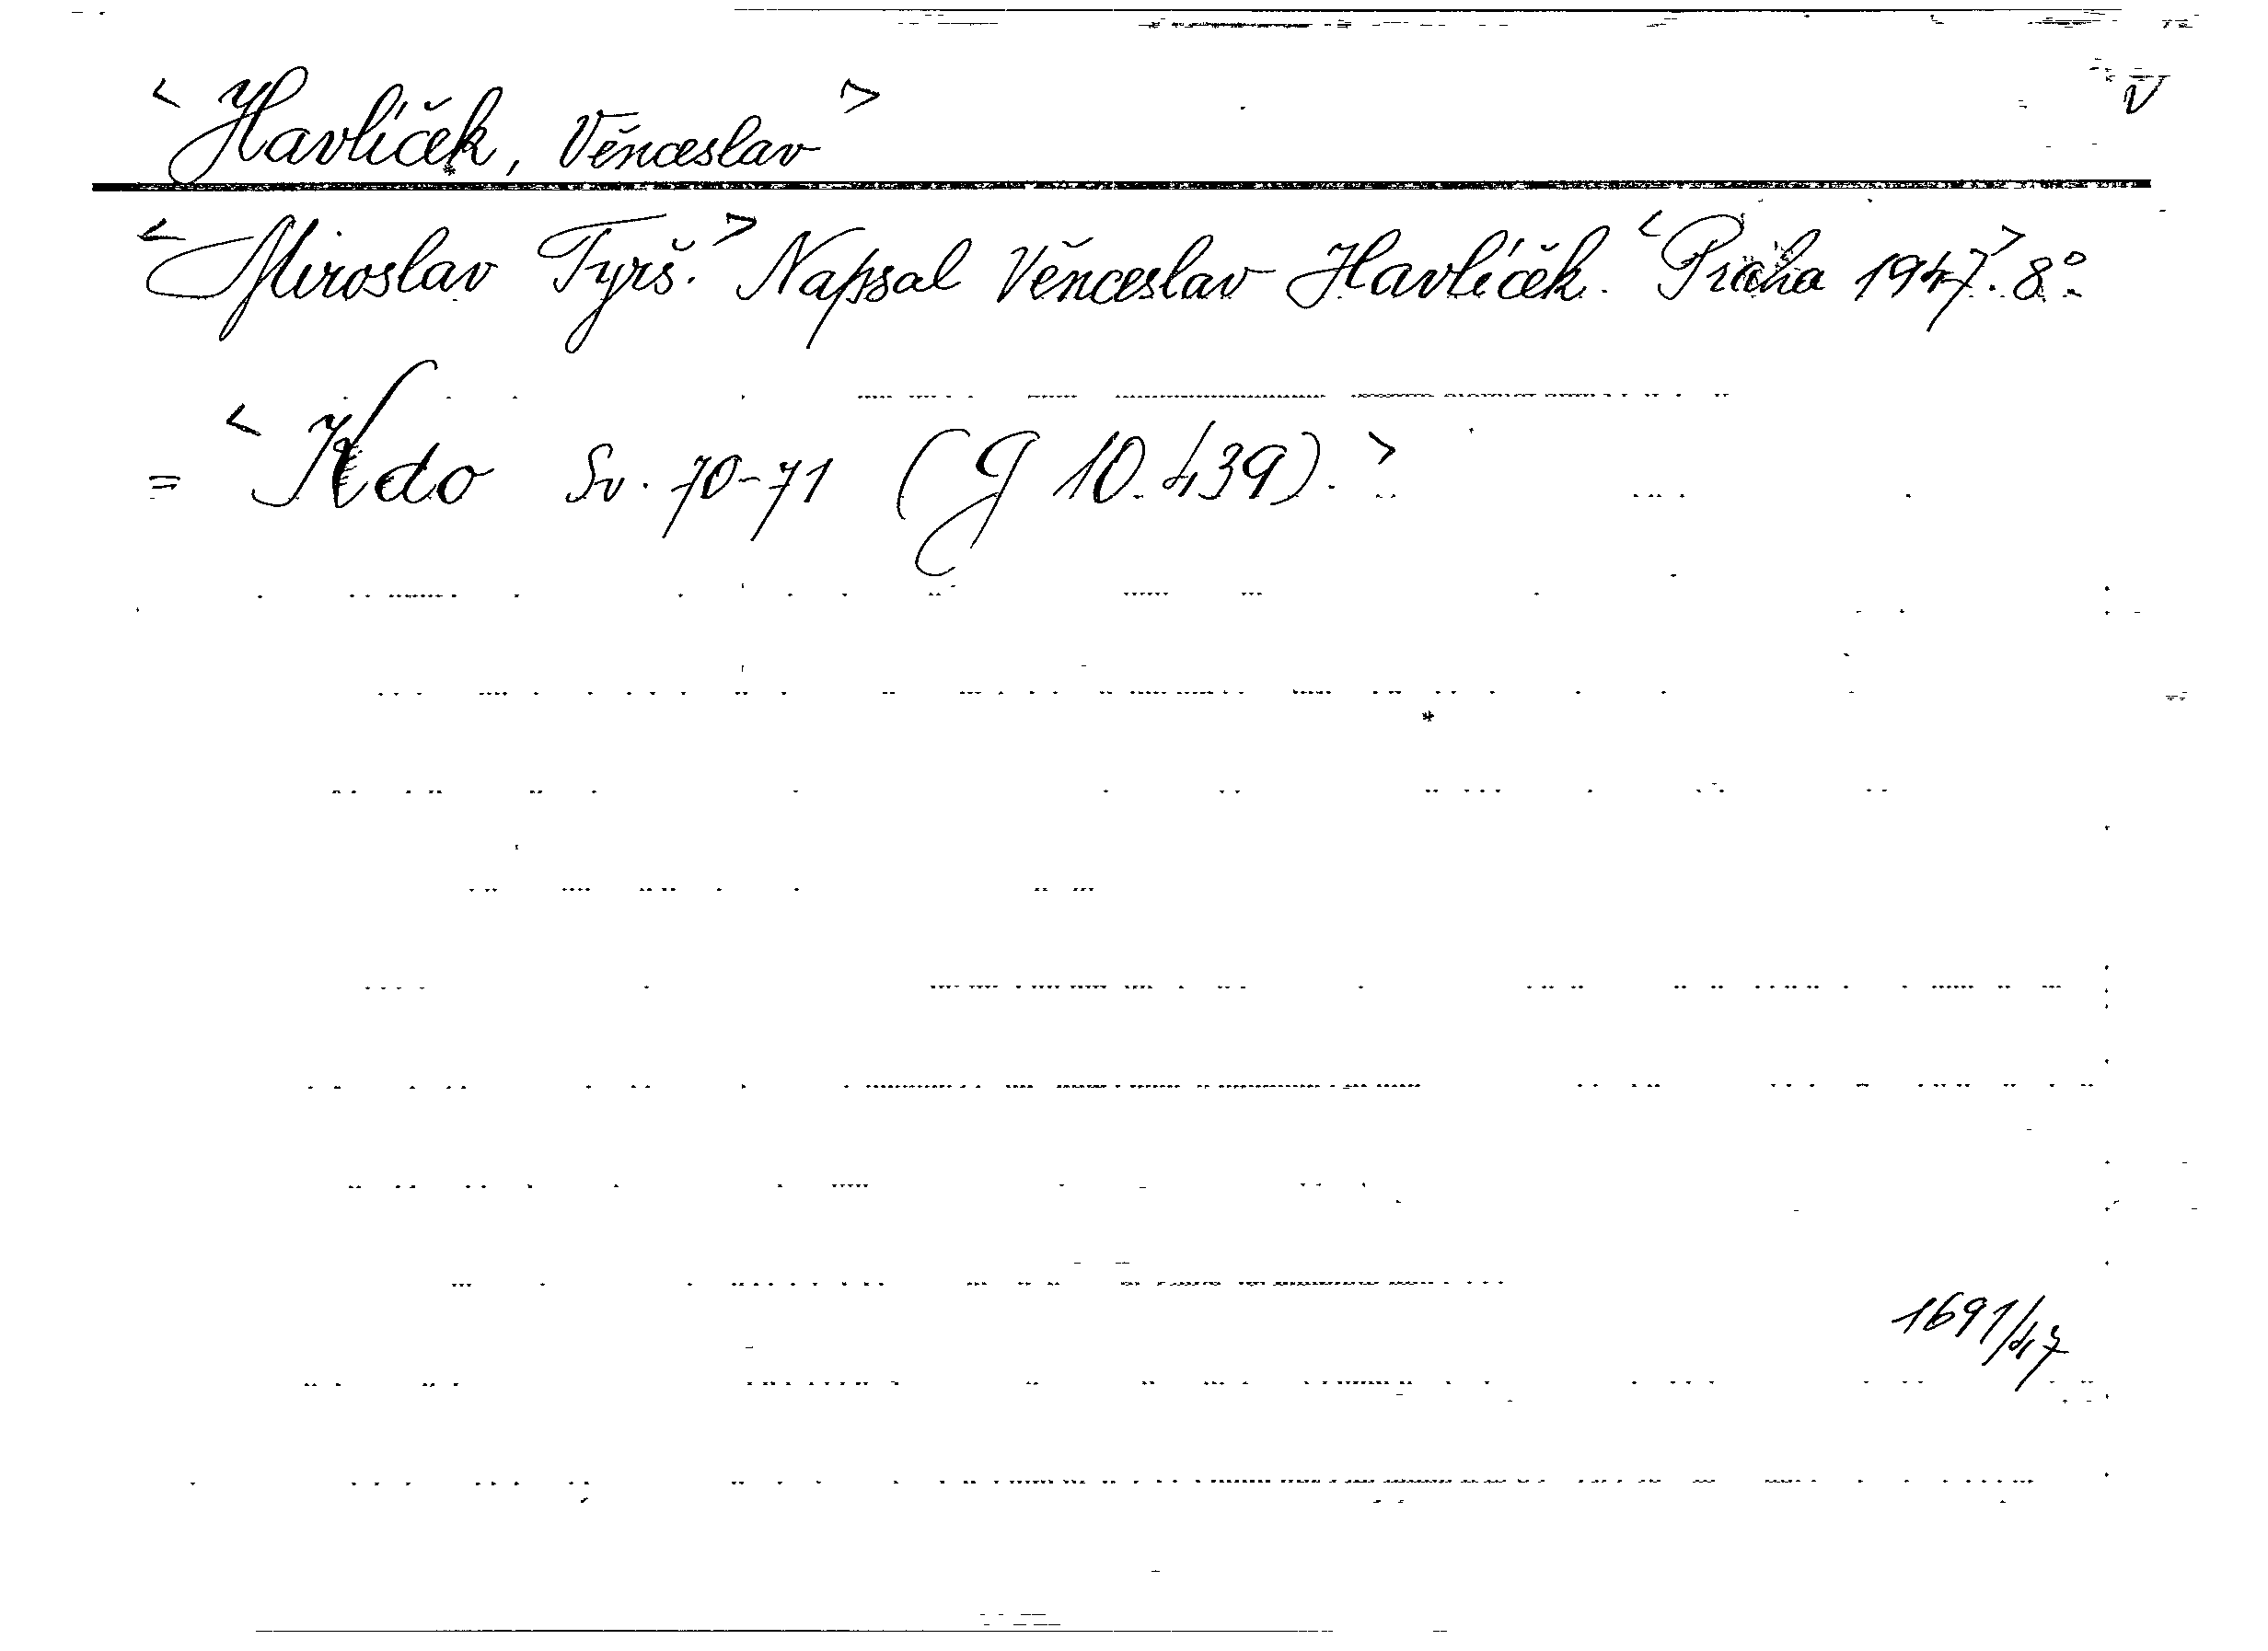 < Havlíček, Věnceslav > V
< Miroslav Tyrš. > Napsal Věnceslav Havlíček. < Praha 1947. > 8°.
= < Kdo Sv. 70-71 (G 10.439). >
1691/47